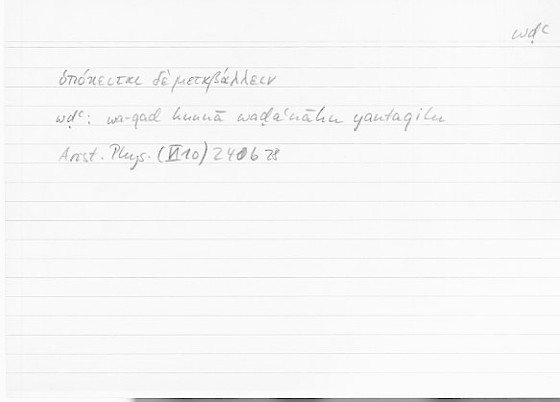 wḍʿ
ὑπόκειται δὲ μεταβάλλειν
wḍʿ: wa-qad kunnā waḍaʿnāhu yantaqilu
Arist. Phys. (VI 10) 240b 28